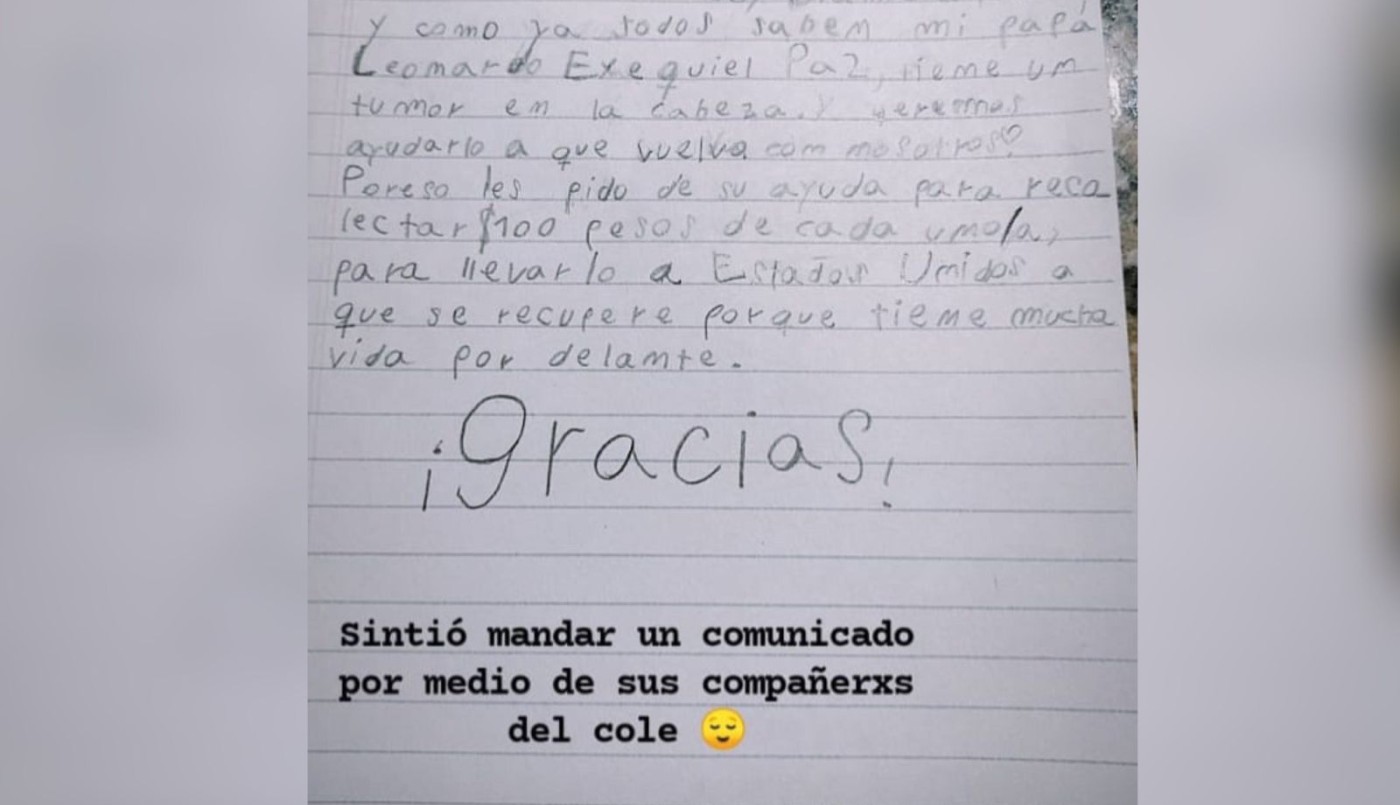 y como ya todos saben mi papá
Leomardo Exequiel Paz, tieme um
tumor em la cabeza. Y queremos
ayudarlo a que vuelva com mosotros♡
Poreso les pido de su ayuda para reca
lectar $100 pesos de cada umo/a,
para llevarlo a Estados Umidos a
que se recupere porque tieme mucha
vida por delamte.
¡Gracias!
Sintió mandar un comunicado
por medio de sus compañerxs
del cole 😌